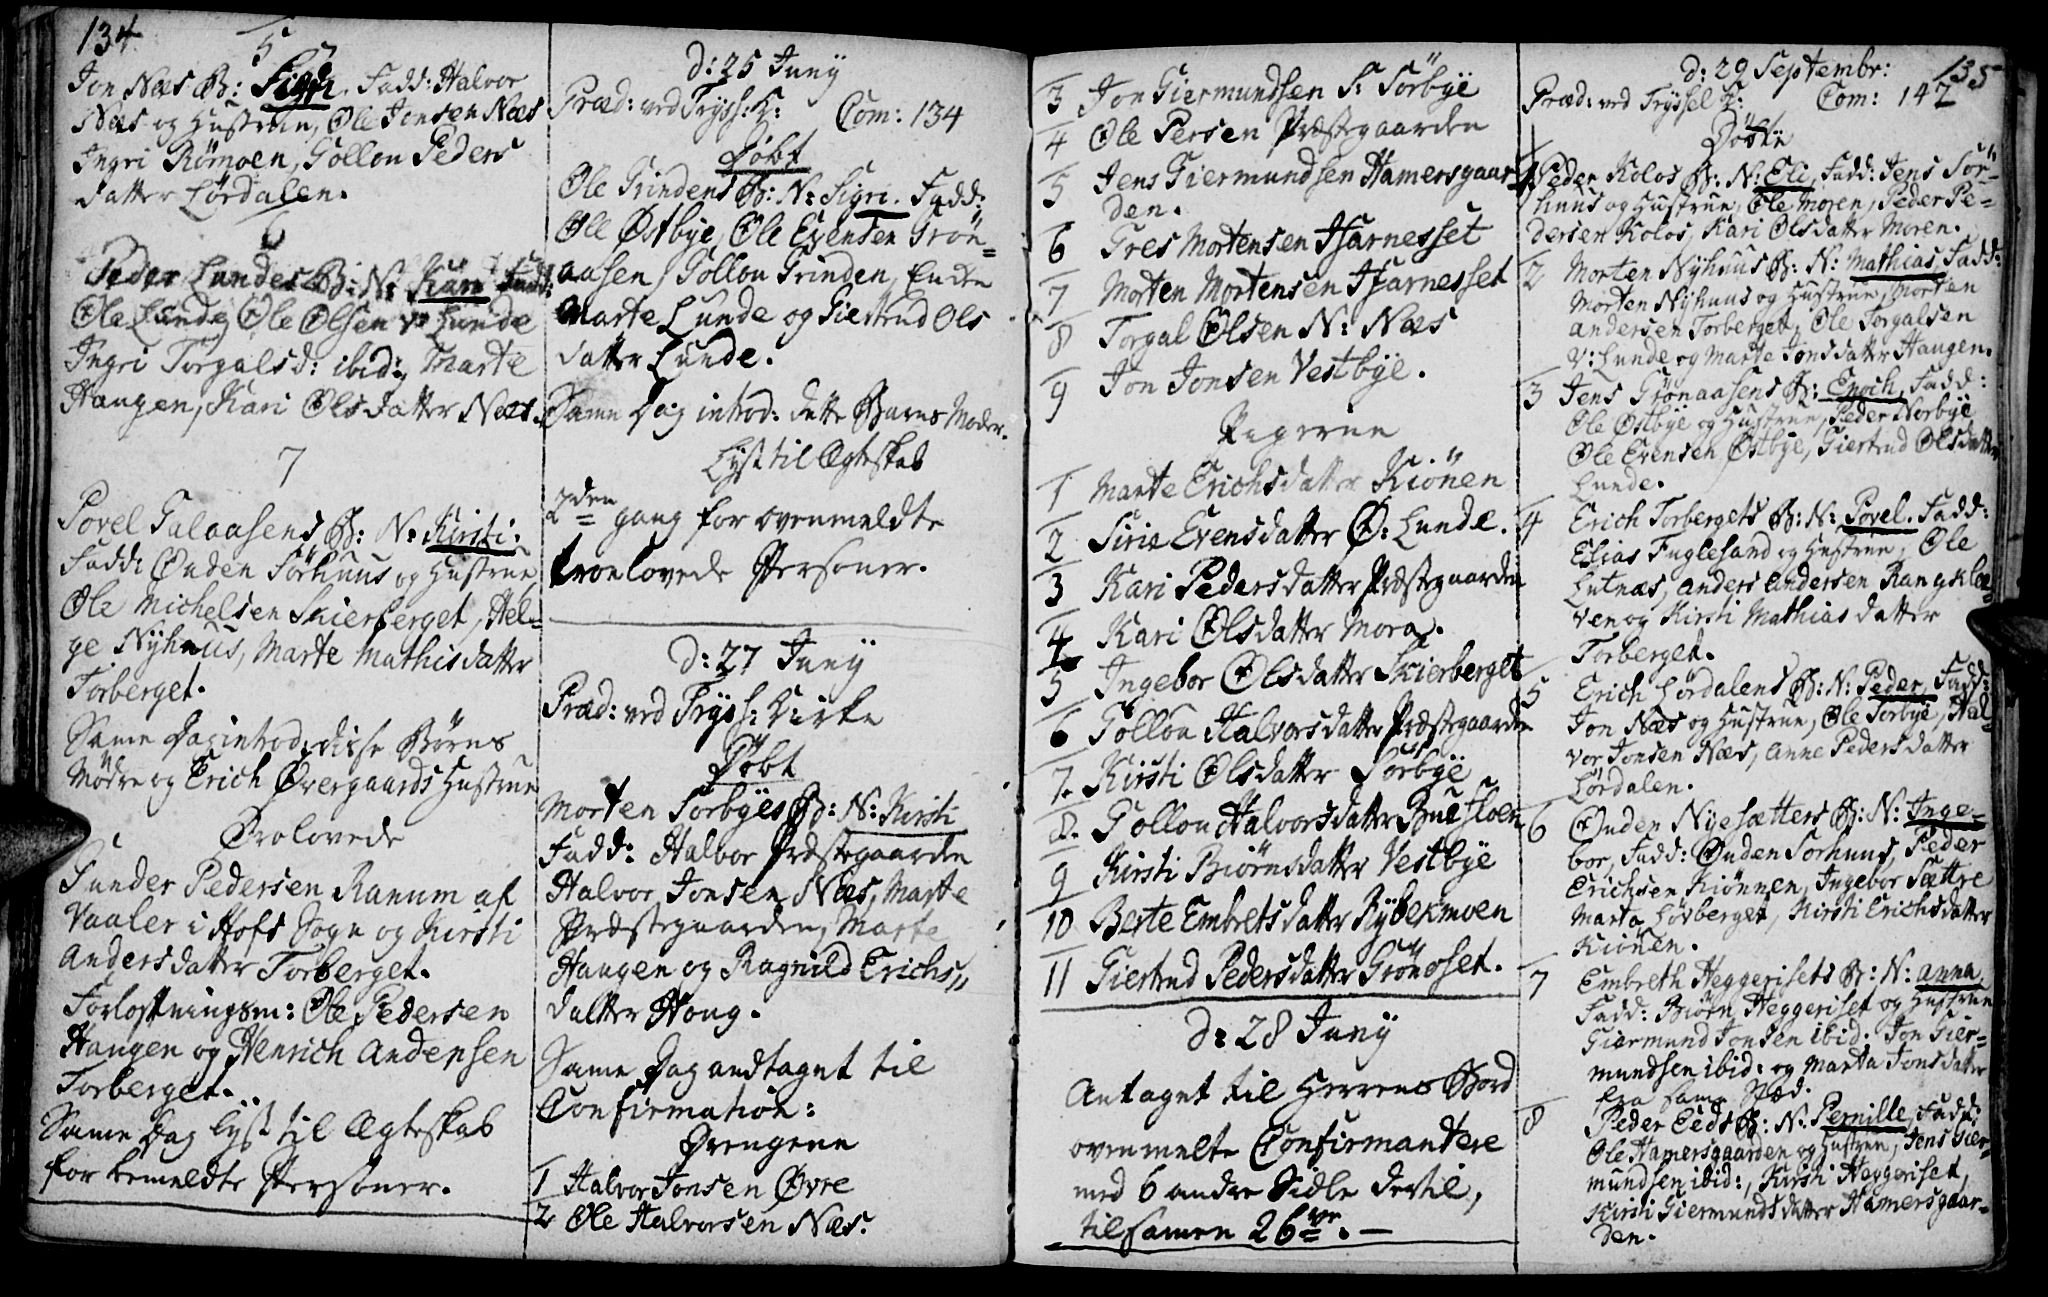 134
5
Jon Næs B: Sigri. Fadd: Halvor
Næs og Hustrue, Ole Jonsen Næs
Ingri Römoen, Gollou Peders
datter Lördalen.
6
Peder Lundes B: N: Kari Fadd:
Ole Lunde, Ole Olsen V: Lunde
Ingri Torgalsd: ibid:, Marte
Haugen, Kari Olsdatter Næs.
7
Povel Galaasens B: N: Kirsti:
Fadd: Ouden Sörhuus og Hustrue
Ole Michelsen Skierberget, Hel-
ge Nyhuus, Marte Mathisdatter
Torberget.
Same Dag introd: disse Börns
Mödre og Erich Övergaards Hustrue
Trolovede
Gunder Pedersen Ranum af
Vaaler i Hofs Sogn og Kirsti
Andersdatter Torberget.
Forlovningsm: Ole Pedersen
Haugen og Henrich Andersen
Torberget.
Same Dag lyst til Ægteskab
for bemeldte Personer.
d: 25 Juny
Præd: ved Tryss: K: Com: 134
Döbt
Ole Grindens B: N: Sigri. Fadd:
Ole Østbye, Ole Evensen Grön-
aasen, Gollou Grinden, Enche
Marte Lunde og Giertrud Ols
datter Lunde.
Same Dag introd: dette Barns Moder.
Lyst til Ægteskab
2den gang for ovenmeldte
troelovede Personer.
d: 27 Juny
Præd: ved Tryss: Kirke
Döbt
Morten Sorbyes B: N: Kirsti
Fadd: Halvor Præstegaarden
Halvor Jonsen Næs, Marte
Præstegaarden, Marte
Haugen og Ragnild Erichs-
datter Houg.
Same Dag andtaget til
Confirmation:
Drengene
1 Halvor Jonsen Øvre
2 Ole Halvorsen Næs.
3 Jon Giermundsen S: Sörbye
4 Ole Persen Præstegaarden
5 Jens Giermundsen Hamersgaar-
den.
6 Tres Mortensen Hiarnesset
7 Morten Mortensen Hiarnesset
8 Torgal Olsen N: Næs
9 Jon Jonsen Vestbye.
Pigerne
1 Marte Erichsdatter Kiönen
2 Sirie Evensdatter Ø: Lunde.
3 Kari Pedersdatter Præstegaarden
4 Kari Olsdatter Mora.
5 Ingebor Olsdatter Skierberget
6 Gollou Halvorsdatter Præstegaarden
7. Kirsti Olsdatter Sörbye
8. Gollou Halvorsdatter
9 Kirsti Biörnsdatter Vestbye
10 Berte Embretsdatter Rybekmoen
11 Giertrud Pedersdatter Grönoset.
d: 28 Juny
Antaget til Herrens Bord
ovenmelte Confirmantere
med 6 andre Sidle dertil,
tilsamen 26ve. —
135
d: 29 Septembr:
Præd: ved Tryssel K: Com: 142
Döbte
1 Peder Kolos B: N: Eli, Fadd: Jens Sör-
huus og Hustrue, Ole Moren, Peder Pe-
dersen Kolos, Kari Olsdatter Moren.
2 Morten Nyhuus B: N: Mathias Fadd:
Morten Nyhuus og Hustrue, Morten
Andersen Torberget, Ole Torgalsen
V: Lunde og Marte Jonsdatter Haugen.
3 Jens Grönaasens B: Enoch, Fadd:
Ole Østbye og Hustrue, Peder Norbye
Ole Evensen Østbye, Giertrud Olsdatter
Lunde.
4 Erich Torbergets B: N: Povel. Fadd:
Elias Fuglesand og Hustrue, Ole
Lutnæs, Anders Andersen Rangklee-
ven og Kirsti Mathiasdatter
Torberget.
5 Erich Lördalens B: N: Peder. Fadd:
Jon Næs og Hustrue, Ole Sorbye, Hal-
vor Jonsen Næs, Anne Pedersdatter
Lördalen.
6 Ouden Nyesætters B: N: Inge-
bor, Fadd: Ouden Sorhuus, Peder
Erichsen Kiönnen, Ingebor Sættre
Marta Lövberget, Kirsti Erichsdatter
Kiönen.
7 Embreth Heggerisets B: N: Anna
Fadd: Biörn Heggeriset og Hustrue
Giermund Jonsen ibid. Jon Gier-
mundsen ibid: og Marta Jonsdatter
fra same Stæd.
8 Peder Eeds B: N: Pernille Fadd:
Ole Hamersgaarden og Hustrue, Jens Gier-
mundsen ibid:, Kirsti Heggeriset,
Kirsti Giermundsdatter Hamersgaar-
den.